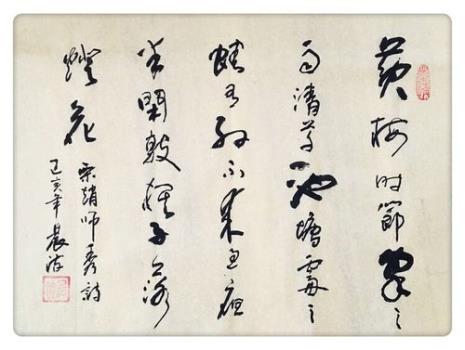 黄梅时節家々
雨清草池塘處々
蛙有約不来過夜
半閑敲棋子落
燈花
宋趙師秀詩
己亥年晨